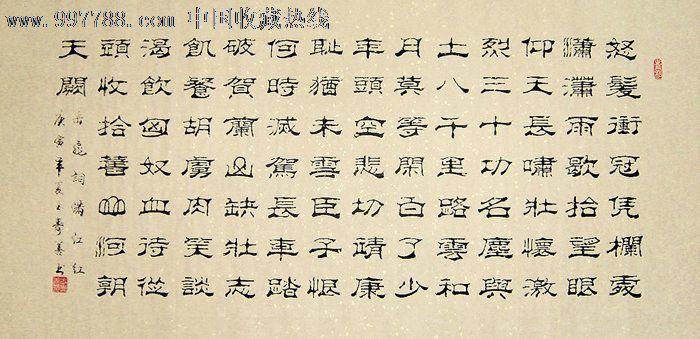 www.997788.com 中国收藏热线
怒髮衝冠凭欄處
瀟瀟雨歇抬望眼
仰天長嘯壯懷激
烈三十功名塵與
土八千里路雲和
月莫等閑百了少
年頭空悲切靖康
恥猶未雪臣子恨
何時滅駕長車踏
破賀蘭山缺壯志
飢餐胡虜肉笑談
渴飲匈奴血待從
頭收拾舊山河朝
天闕
岳飛詞滿江紅
庚寅年夏王壽書